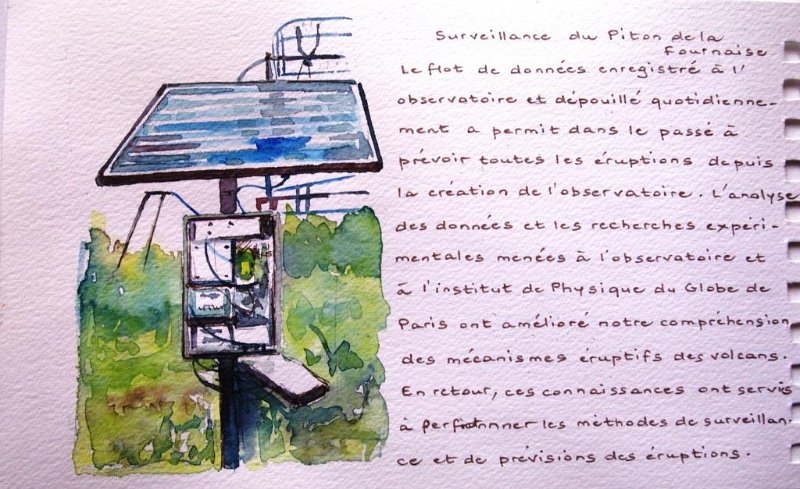 Surveillance du Piton de la
Fournaise
Le flot de données enregistré à l'
observatoire et dépouillé quotidienne-
ment a permit dans le passé à
prévoir toutes les éruptions depuis
la création de l'observatoire. L'analyse
des données et les recherches expéri-
mentales menées à l'observatoire et
à l'institut de Physique du Globe de
Paris ont amélioré notre compréhension
des mécanismes éruptifs des volcans.
En retour, ces connaissances ont servis
à les méthodes de surveillan.
ce et de prévisions des éruptions.